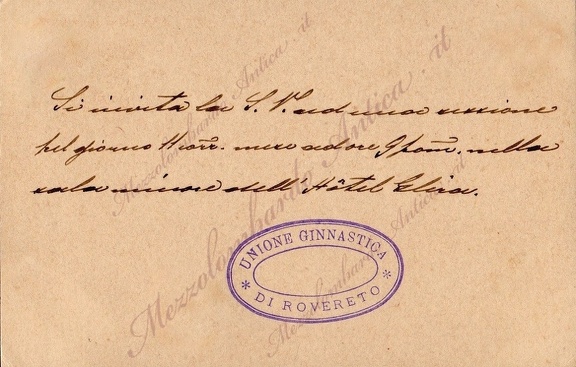 Si invita la S. V. ad una sessione
pel giorno 11 corr. mese ad ore 9 pom. nella
sala minore dell' Hôtel Elira.
UNIONE GINNASTICA
DI ROVERETO
Mezzolombardo Antica .it
Mezzolombardo Antica .it
Mezzolombardo Antica .it